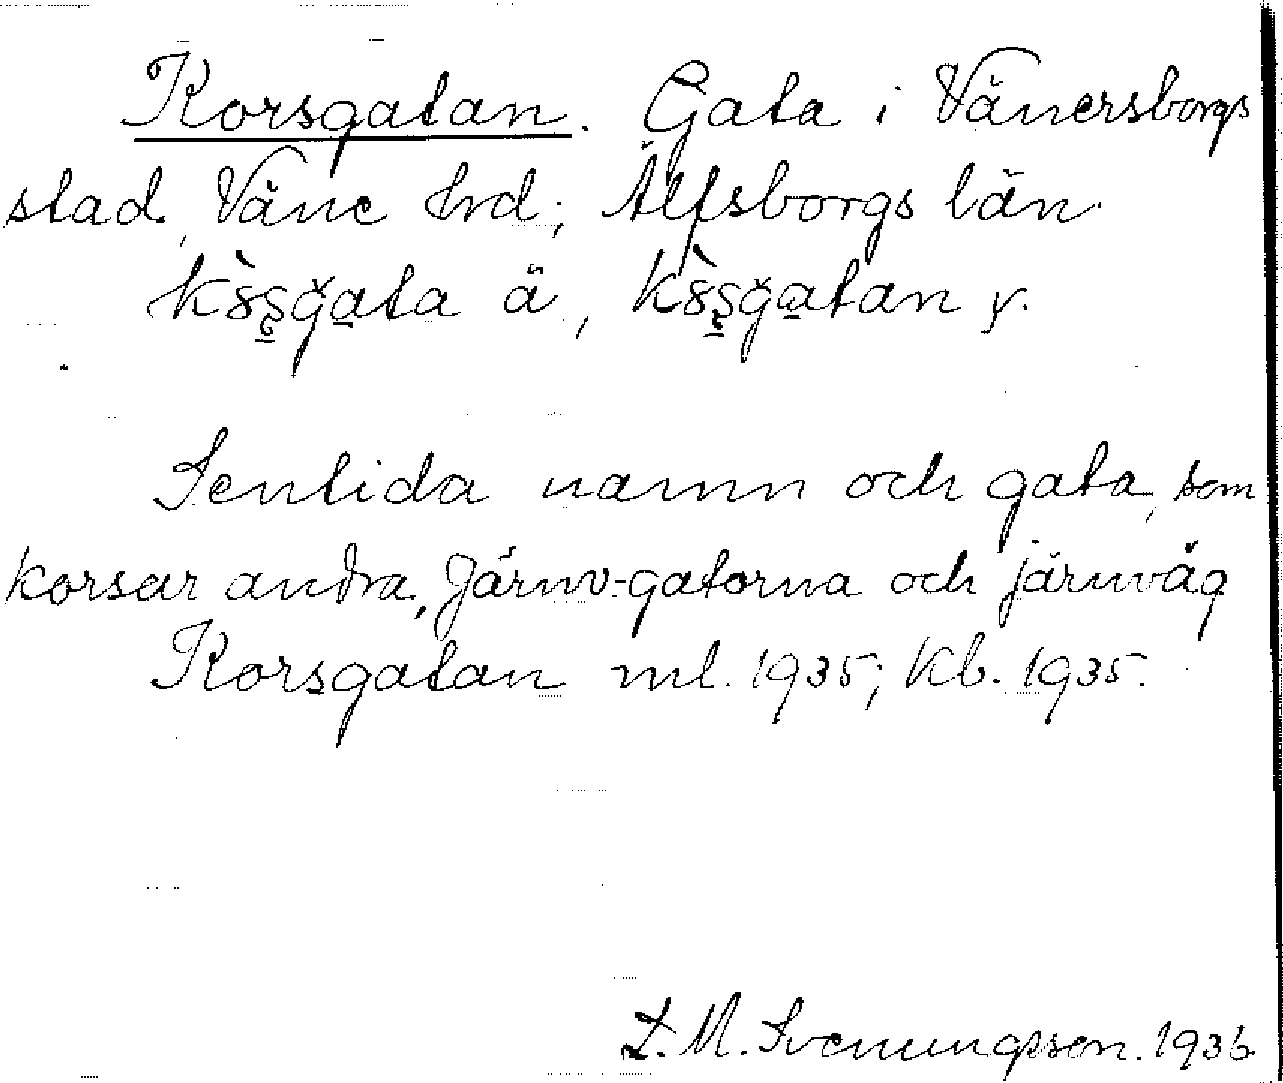 Korsgatan. Gata i Vänersborgs
stad, Väne hrd; Älfsborgs län.
ä, y.
Sentida namn och gata, som
korsar andra, Järnv.-gatorna och järnväg
Korsgatan ml. 1935; Kb. 1935.
L. M. Svenungsson. 1936